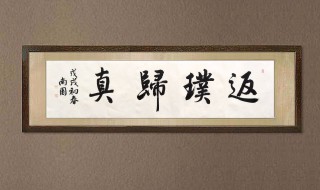 返璞歸真
戊戌初春
尚圖